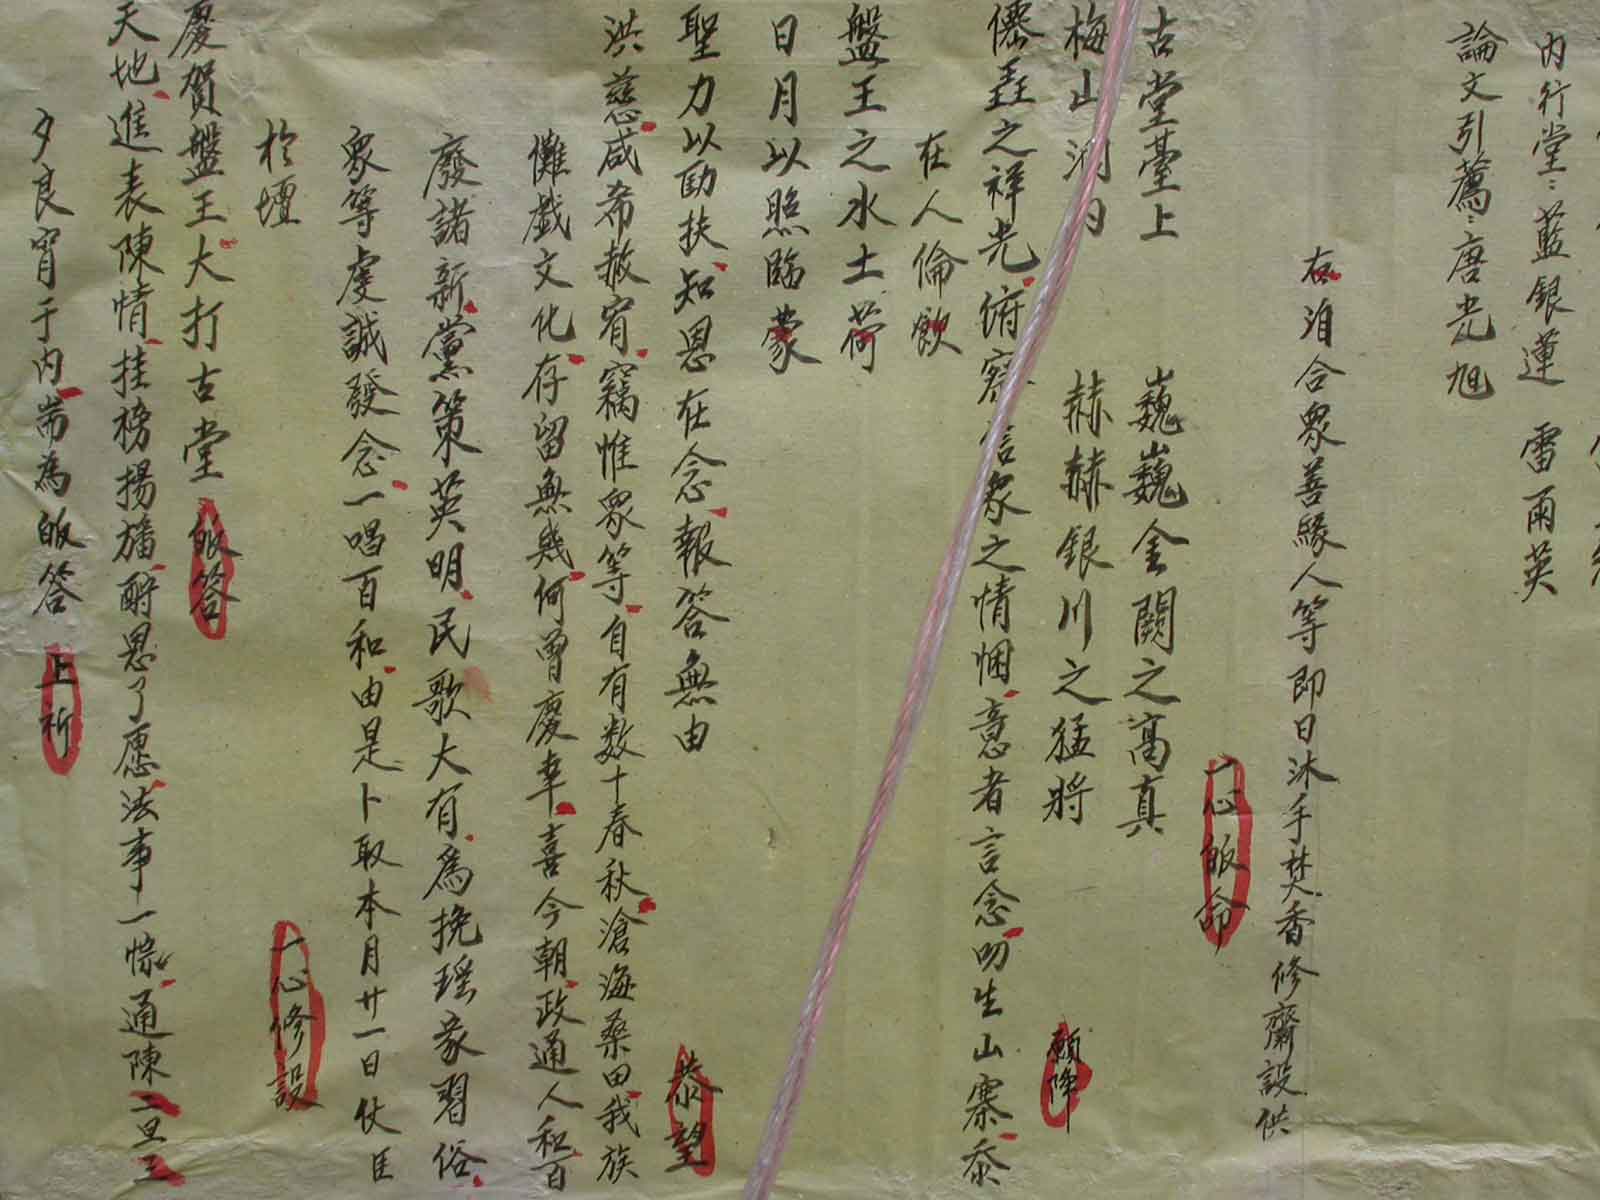 内行堂：藍銀蓮　雷雨英
論文引薦：唐光旭
右洎合眾善緣人等即日沐手焚香修齋設供
一心皈命
古堂臺上　巍巍金闕之高真
梅山洞内　赫赫銀川之猛將　願降
之祥光俯察信眾之情悃意者言念叨生山寨忝
在人倫飲
盤王之水土荷
日月以照臨蒙
聖力以匡扶知恩在念報答無由　恭望
洪慈咸希赦宥竊惟眾等自有数十春秋滄海桑田我族
儺戲文化存留無幾何曾慶幸喜今朝政通人和百
廢諸新黨策英明民歌大有為挽瑶家習俗
眾等虔誠發念一唱百和由是卜取本月廿一日仗臣
於壇　一心修設
慶賀盤王大打古堂　皈答
天地進表陳情挂榜揚旛酧恩了愿法事一悰通陳二旦三
夕良宵于内耑為皈答　上祈